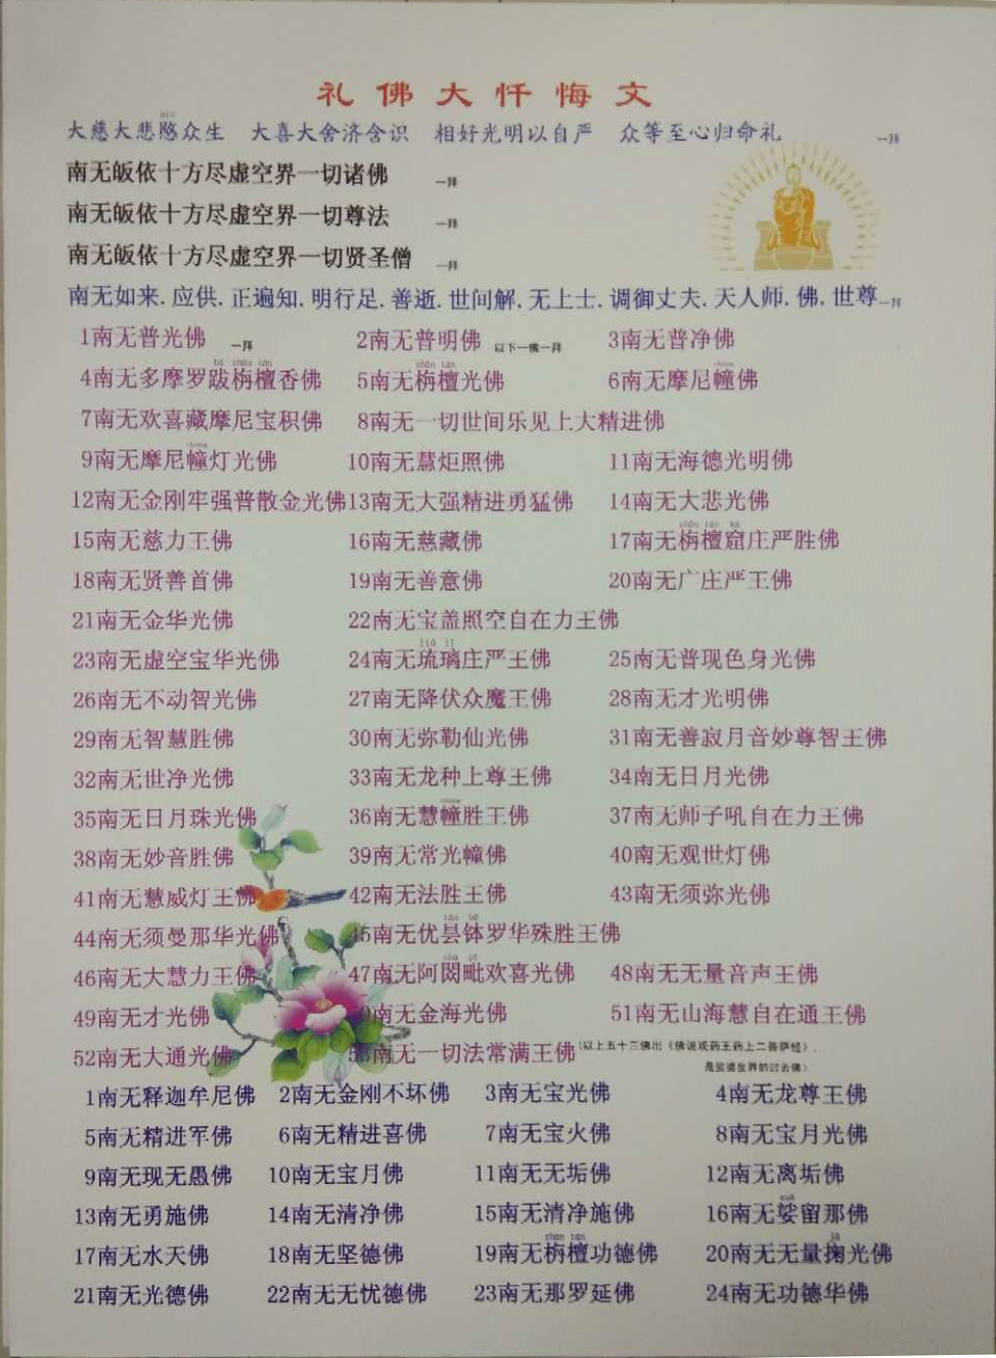 礼佛大忏悔文
大慈大悲愍众生 大喜大舍济含识 相好光明以自严 众等至心归命礼 一拜
南无皈依十方尽虚空界一切诸佛 一拜
南无皈依十方尽虚空界一切尊法 一拜
南无皈依十方尽虚空界一切贤圣僧 一拜
南无如来.应供.正遍知.明行足.善逝.世间解.无上士.调御丈夫.天人师.佛.世尊 一拜
1南无普光佛 一拜 2南无普明佛 以下一佛一拜 3南无普净佛
4南无多摩罗跋栴檀香佛 5南无栴檀光佛 6南无摩尼幢佛
7南无欢喜藏摩尼宝积佛 8南无一切世间乐见上大精进佛
9南无摩尼幢灯光佛 10南无慧炬照佛 11南无海德光明佛
12南无金刚牢强普散金光佛 13南无大强精进勇猛佛 14南无大悲光佛
15南无慈力王佛 16南无慈藏佛 17南无栴檀窟庄严胜佛
18南无贤善首佛 19南无善意佛 20南无广庄严王佛
21南无金华光佛 22南无宝盖照空自在力王佛
23南无虚空宝华光佛 24南无琉璃庄严王佛 25南无普现色身光佛
26南无不动智光佛 27南无降伏众魔王佛 28南无才光明佛
29南无智慧胜佛 30南无弥勒仙光佛 31南无善寂月音妙尊智王佛
32南无世净光佛 33南无龙种上尊王佛 34南无日月光佛
35南无日月珠光佛 36南无慧幢胜王佛 37南无师子吼自在力王佛
38南无妙音胜佛 39南无常光幢佛 40南无观世灯佛
41南无慧威灯王佛 42南无法胜王佛 43南无须弥光佛
44南无须曼那华光佛 45南无优昙钵罗华殊胜王佛
46南无大慧力王佛 47南无阿閦毗欢喜光佛 48南无无量音声王佛
49南无才光佛 0南无金海光佛 51南无山海慧自在通王佛
52南无大通光佛 53南无一切法常满王佛(以上五十三佛出《佛说观药王药上二菩萨经》,
是娑婆世界的过去佛)
1南无释迦牟尼佛 2南无金刚不坏佛 3南无宝光佛 4南无龙尊王佛
5南无精进军佛 6南无精进喜佛 7南无宝火佛 8南无宝月光佛
9南无现无愚佛 10南无宝月佛 11南无无垢佛 12南无离垢佛
13南无勇施佛 14南无清净佛 15南无清净施佛 16南无娑留那佛
17南无水天佛 18南无坚德佛 19南无栴檀功德佛 20南无无量掬光佛
21南无光德佛 22南无无忧德佛 23南无那罗延佛 24南无功德华佛